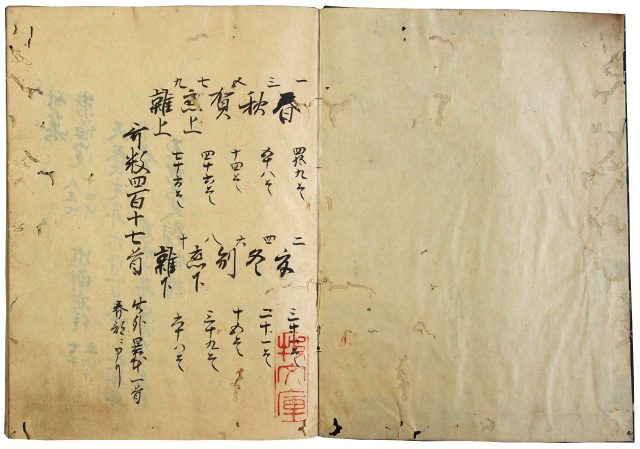 一 春 四十九首 二 夏 三十一首
三 秋 五十八首 四 冬 二十一首
五 賀 十四首 六 別 十五首
七 恋上 四十六首 八 恋下 三十九首
九 雜上 七十六首 十 雜下 六十八首
哥数四百十七首 此外異本一首
春部ニアリ
文庫